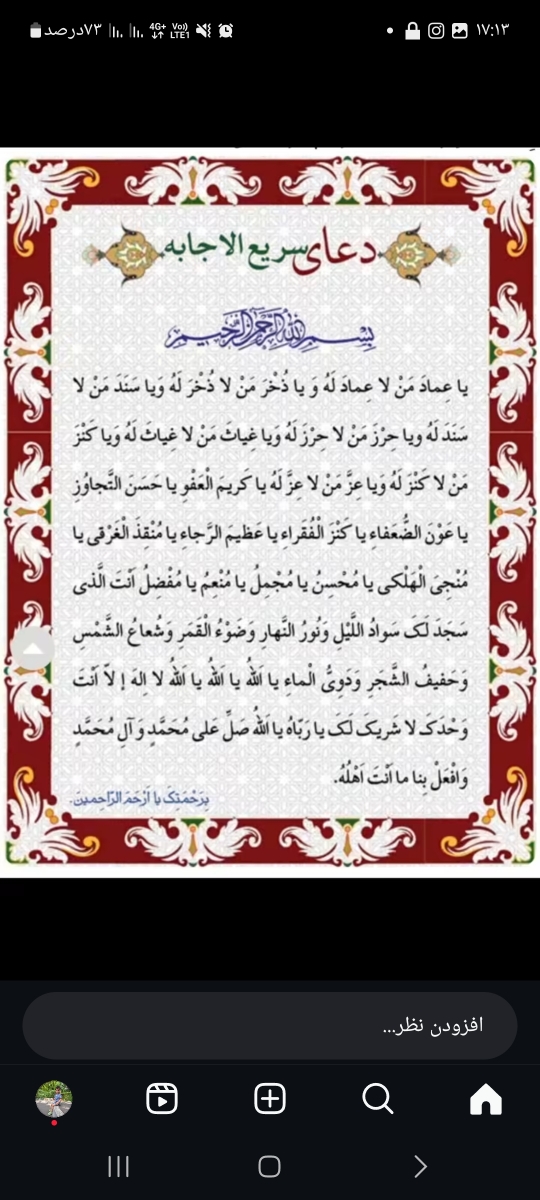 ۱۷:۱۳
۷۳درصد
4G+
Vo))
LTE1
دعای سریع الاجابه
بسم الله الرحمن الرحیم
یا عِمادَ مَنْ لا عِمادَ لَهُ وَ یا ذُخْرَ مَنْ لا ذُخْرَ لَهُ وَیا سَنَدَ مَنْ لا
سَنَدَ لَهُ ویا حِرْزَ مَنْ لا حِرْزَ لَهُ وَیا غِیاثَ مَنْ لا غِیاثَ لَهُ وَیا کَنْزَ
مَنْ لا کَنْزَ لَهُ وَیا عِزَّ مَنْ لا عِزَّ لَهُ یا کَریمَ الْعَفْوِ یا حَسَنَ التَّجاوُزِ
یا عَوْنَ الضُّعَفاءِ یا کَنْزَ الْفُقَراءِ یا عَظیمَ الرَّجاءِ یا مُنْقِذَ الْغَرْقی یا
مُنْجِیَ الْهَلْکی یا مُحْسِنُ یا مُجْمِلُ یا مُنْعِمُ یا مُفْضِلُ اَنْتَ الَّذی
سَجَدَ لَکَ سَوادُ اللَّیْلِ وَنُورُ النَّهارِ وَضَوْءُ الْقَمَرِ وَشُعاعُ الشَّمْسِ
وَحَفیفُ الشَّجَرِ وَدَوِیُّ الْماءِ یا اَللهُ یا اَللهُ یا اَللهُ لا اِلهَ اِلاّ اَنْتَ
وَحْدَکَ لا شَریکَ لَکَ یا رَبّاهُ یا اَللهُ صَلِّ عَلی مُحَمَّدٍ وَ آلِ مُحَمَّدٍ
وَافْعَلْ بِنا ما اَنْتَ اَهْلُهُ.
بِرَحْمَتِکَ یا اَرْحَمَ الرّاحِمینَ.
افزودن نظر...